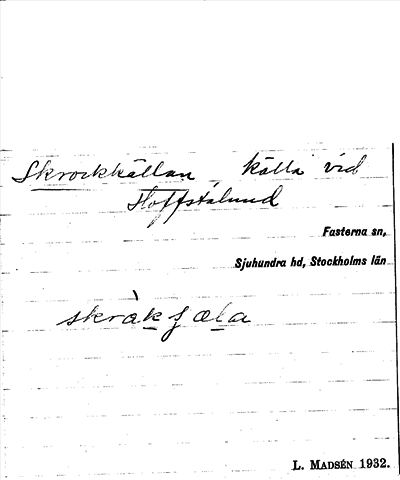 Skrockkällan källa vid
Hoffstalund
Fasterna sn,
Sjuhundra hd, Stockholms län
skràkʃæla
L. MADSÉN 1932.